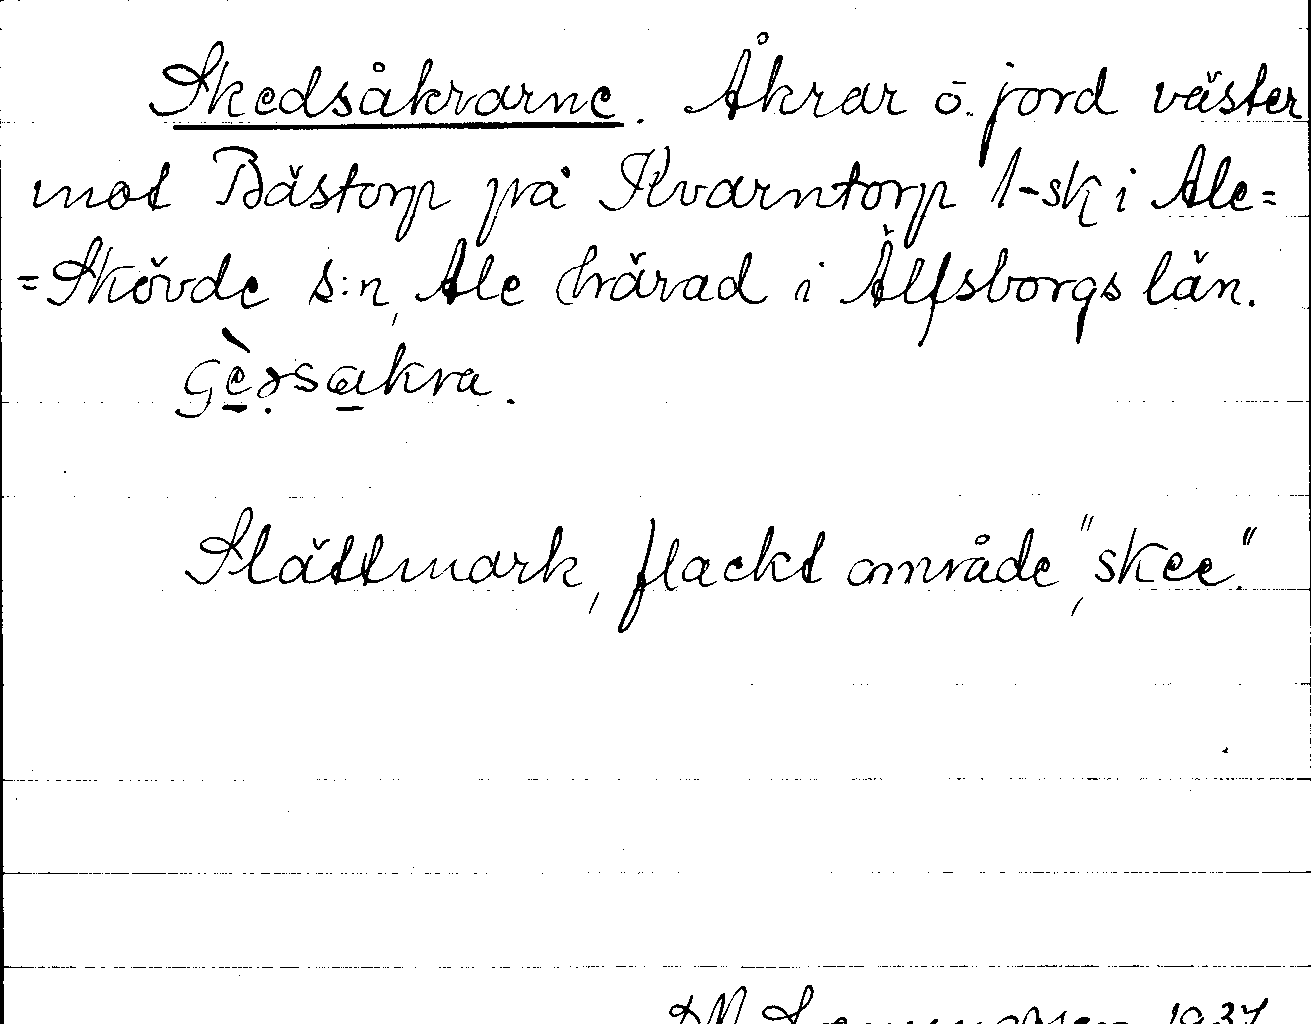 Skedsåkrarne. Åkrar o. jord väster
mot Bästorp på Kvarntorp 1-sk i Ale=
=Skövde s:n, Ale härad i Älfsborgs län.
Slättmark, flackt område, "skee".
1937